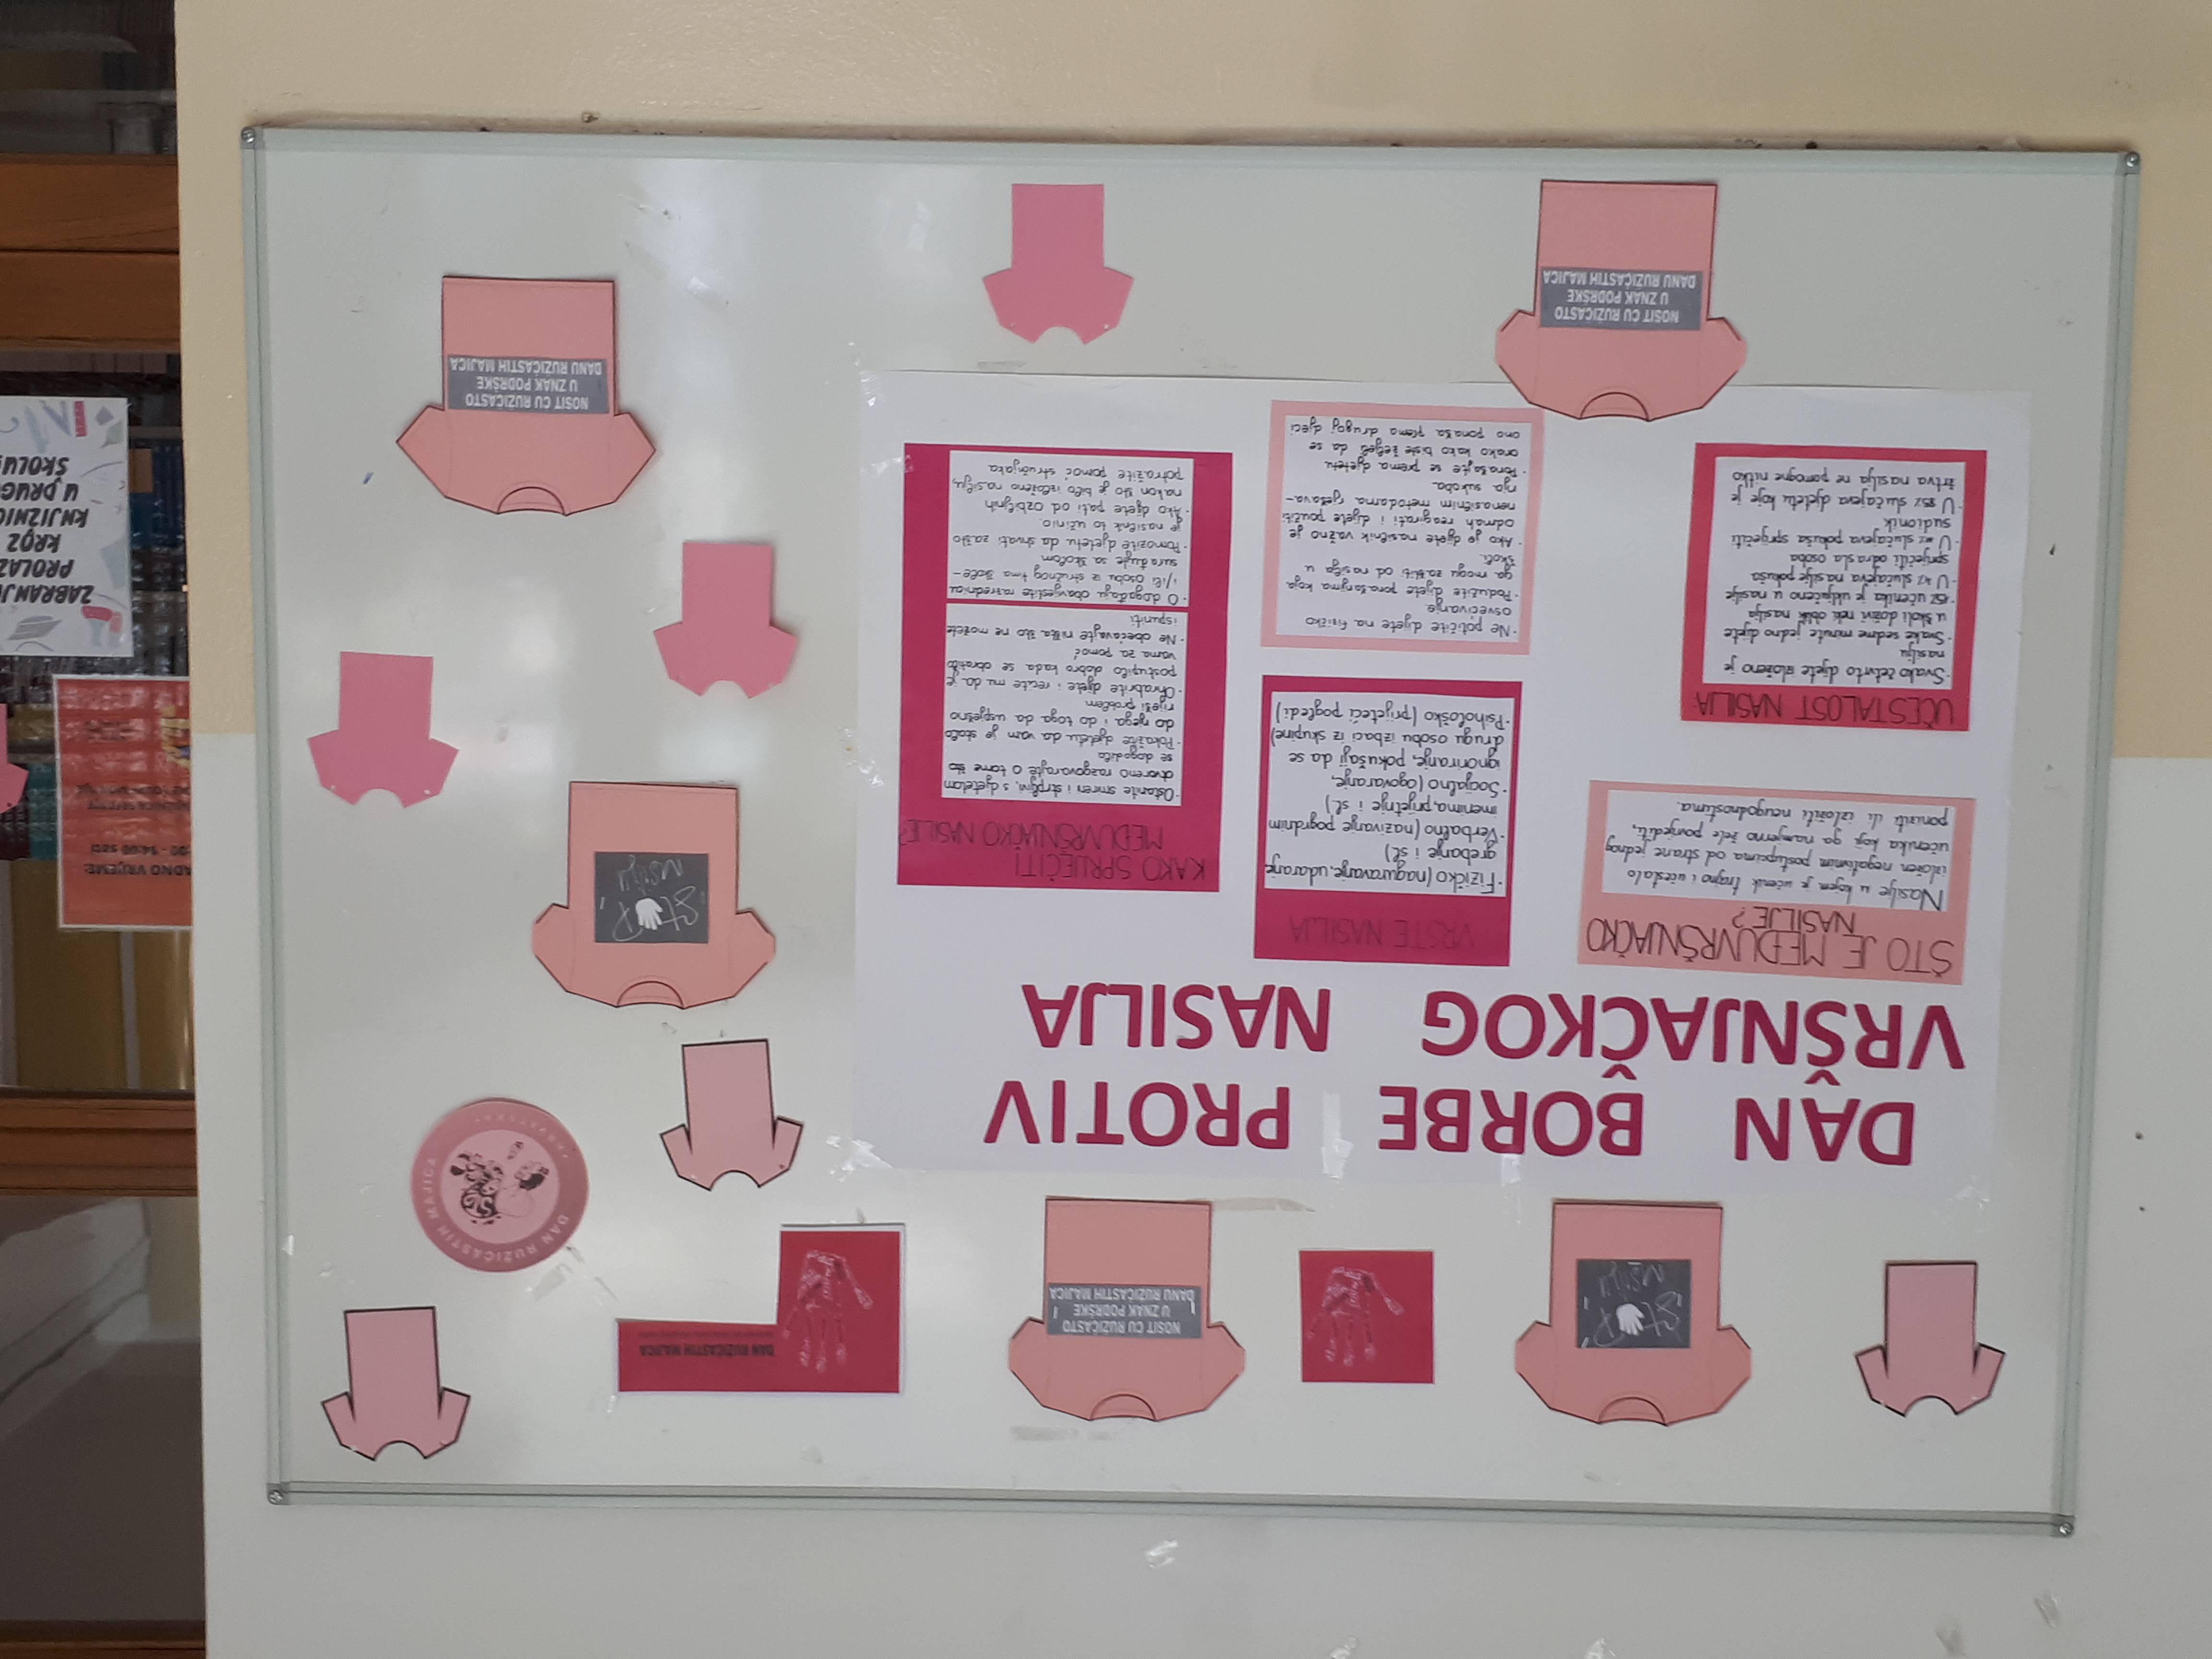 STOP
nasilju
NOSIT CU RUŽIČASTO
U ZNAK PODRŠKE
DANU RUŽIČASTIH MAJICA
DAN RUŽIČASTIH MAJICA
DAN RUŽIČASTIH MAJICA
DAN BORBE PROTIV
VRŠNJAČKOG NASILJA
ŠTO JE MEĐUVRŠNJAČKO
NASILJE?
Nasilje u kojem je učenik trajno i učestalo
izložen negativnim postupcima od strane jednog
učenika koji ga namjerno žele povrijediti,
poniziti ili izložiti neugodnostima.
UČESTALOST NASILJA:
·Svako četvrto dijete izloženo je
nasilju
·Svake sedme minute jedno dijete
u školi doživi neki oblik nasilja
·15% učenika je uključeno u nasilje
·U 4% slučajeva nasilje pokuša
spriječiti odrasla osoba
·U slučajeva pokuša spriječiti
sudionik
·U 85% slučajeva djetetu koje je
žrtva nasilja ne pomogne nitko
VRSTE NASILJA
·Fizičko (naguravanje, udaranje
grebanje i sl.)
·Verbalno (nazivanje pogrdnim
imenima, prijetnje i sl.)
·Socijalno (ogovaranje,
ignoriranje, pokušaji da se
drugu osobu izbaci iz skupine)
·Psihološko (prijeteći pogledi)
·Ne potičite dijete na fizičko
osvećivanje.
·Podučite dijete ponašanjima koja
ga mogu zaštiti od nasilja u
školi.
·Ako je dijete nasilnik važno je
odmah reagirati i dijete poučiti
nenasilnim metodama rješava-
nja sukoba.
·Ponašajte se prema djetetu
onako kako biste željeli da se
ono ponaša prema drugoj djeci
KAKO SPRIJEČITI
MEĐUVRŠNJAČKO NASILJE?
·Ostanite smireni i strpljivi, s djetetom
otvoreno razgovarajte o tome što
se dogodilo
·Pokažite djetetu da vam je stalo
do njega i do toga da uspješno
riješi problem
·Ohrabrite dijete i recite mu da je
postupilo dobro kada se obratilo
vama za pomoć
·Ne obećavajte ništa što ne možete
ispuniti
·O događaju obavijestite razrednicu
i/ili osobu iz stručnog tima škole-
surađujte sa školom
·Pomozite djetetu da shvati zašto
je nasilnik to učinio
·Ako dijete pati od ozbiljnih
nakon što je bilo izloženo nasilju,
potražite pomoć stručnjaka
STOP
nasilju
NOSIT CU RUŽIČASTO
U ZNAK PODRŠKE
DANU RUŽIČASTIH MAJICA
NOSIT CU RUŽIČASTO
U ZNAK PODRŠKE
DANU RUŽIČASTIH MAJICA
ADNO VRIJEME:
00 - 14:00 sati
ZABRANJE
PROLAZ
KROZ
KNJIŽNIC
U DRUG
ŠKOLU